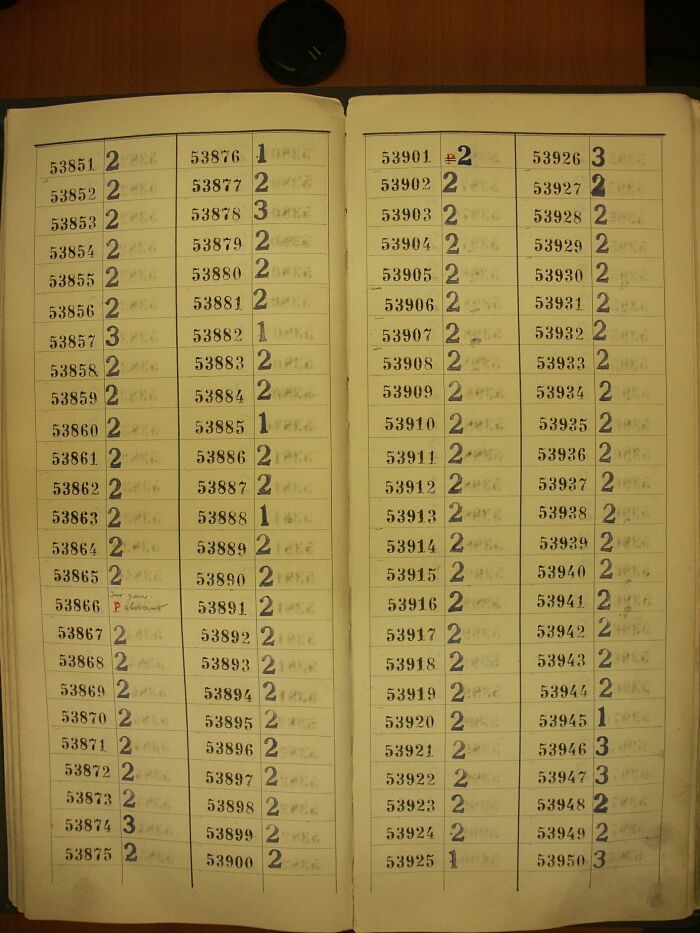 53851 2
53852 2
53853 2
53854 2
53855 2
53856 2
53857 3
53858 2
53859 2
53860 2
53861 2
53862 2
53863 2
53864 2
53865 2
53866 P
53867 2
53868 2
53869 2
53870 2
53871 2
53872 2
53873 2
53874 3
53875 2
53876 1
53877 2
53878 3
53879 2
53880 2
53881 2
53882 1
53883 2
53884 2
53885 1
53886 2
53887 2
53888 1
53889 2
53890 2
53891 2
53892 2
53893 2
53894 2
53895 2
53896 2
53897 2
53898 2
53899 2
53900 2
53901 2
53902 2
53903 2
53904 2
53905 2
53906 2
53907 2
53908 2
53909 2
53910 2
53911 2
53912 2
53913 2
53914 2
53915 2
53916 2
53917 2
53918 2
53919 2
53920 2
53921 2
53922 2
53923 2
53924 2
53925 1
53926 3
53927 2
53928 2
53929 2
53930 2
53931 2
53932 2
53933 2
53934 2
53935 2
53936 2
53937 2
53938 2
53939 2
53940 2
53941 2
53942 2
53943 2
53944 2
53945 1
53946 3
53947 3
53948 2
53949 2
53950 3